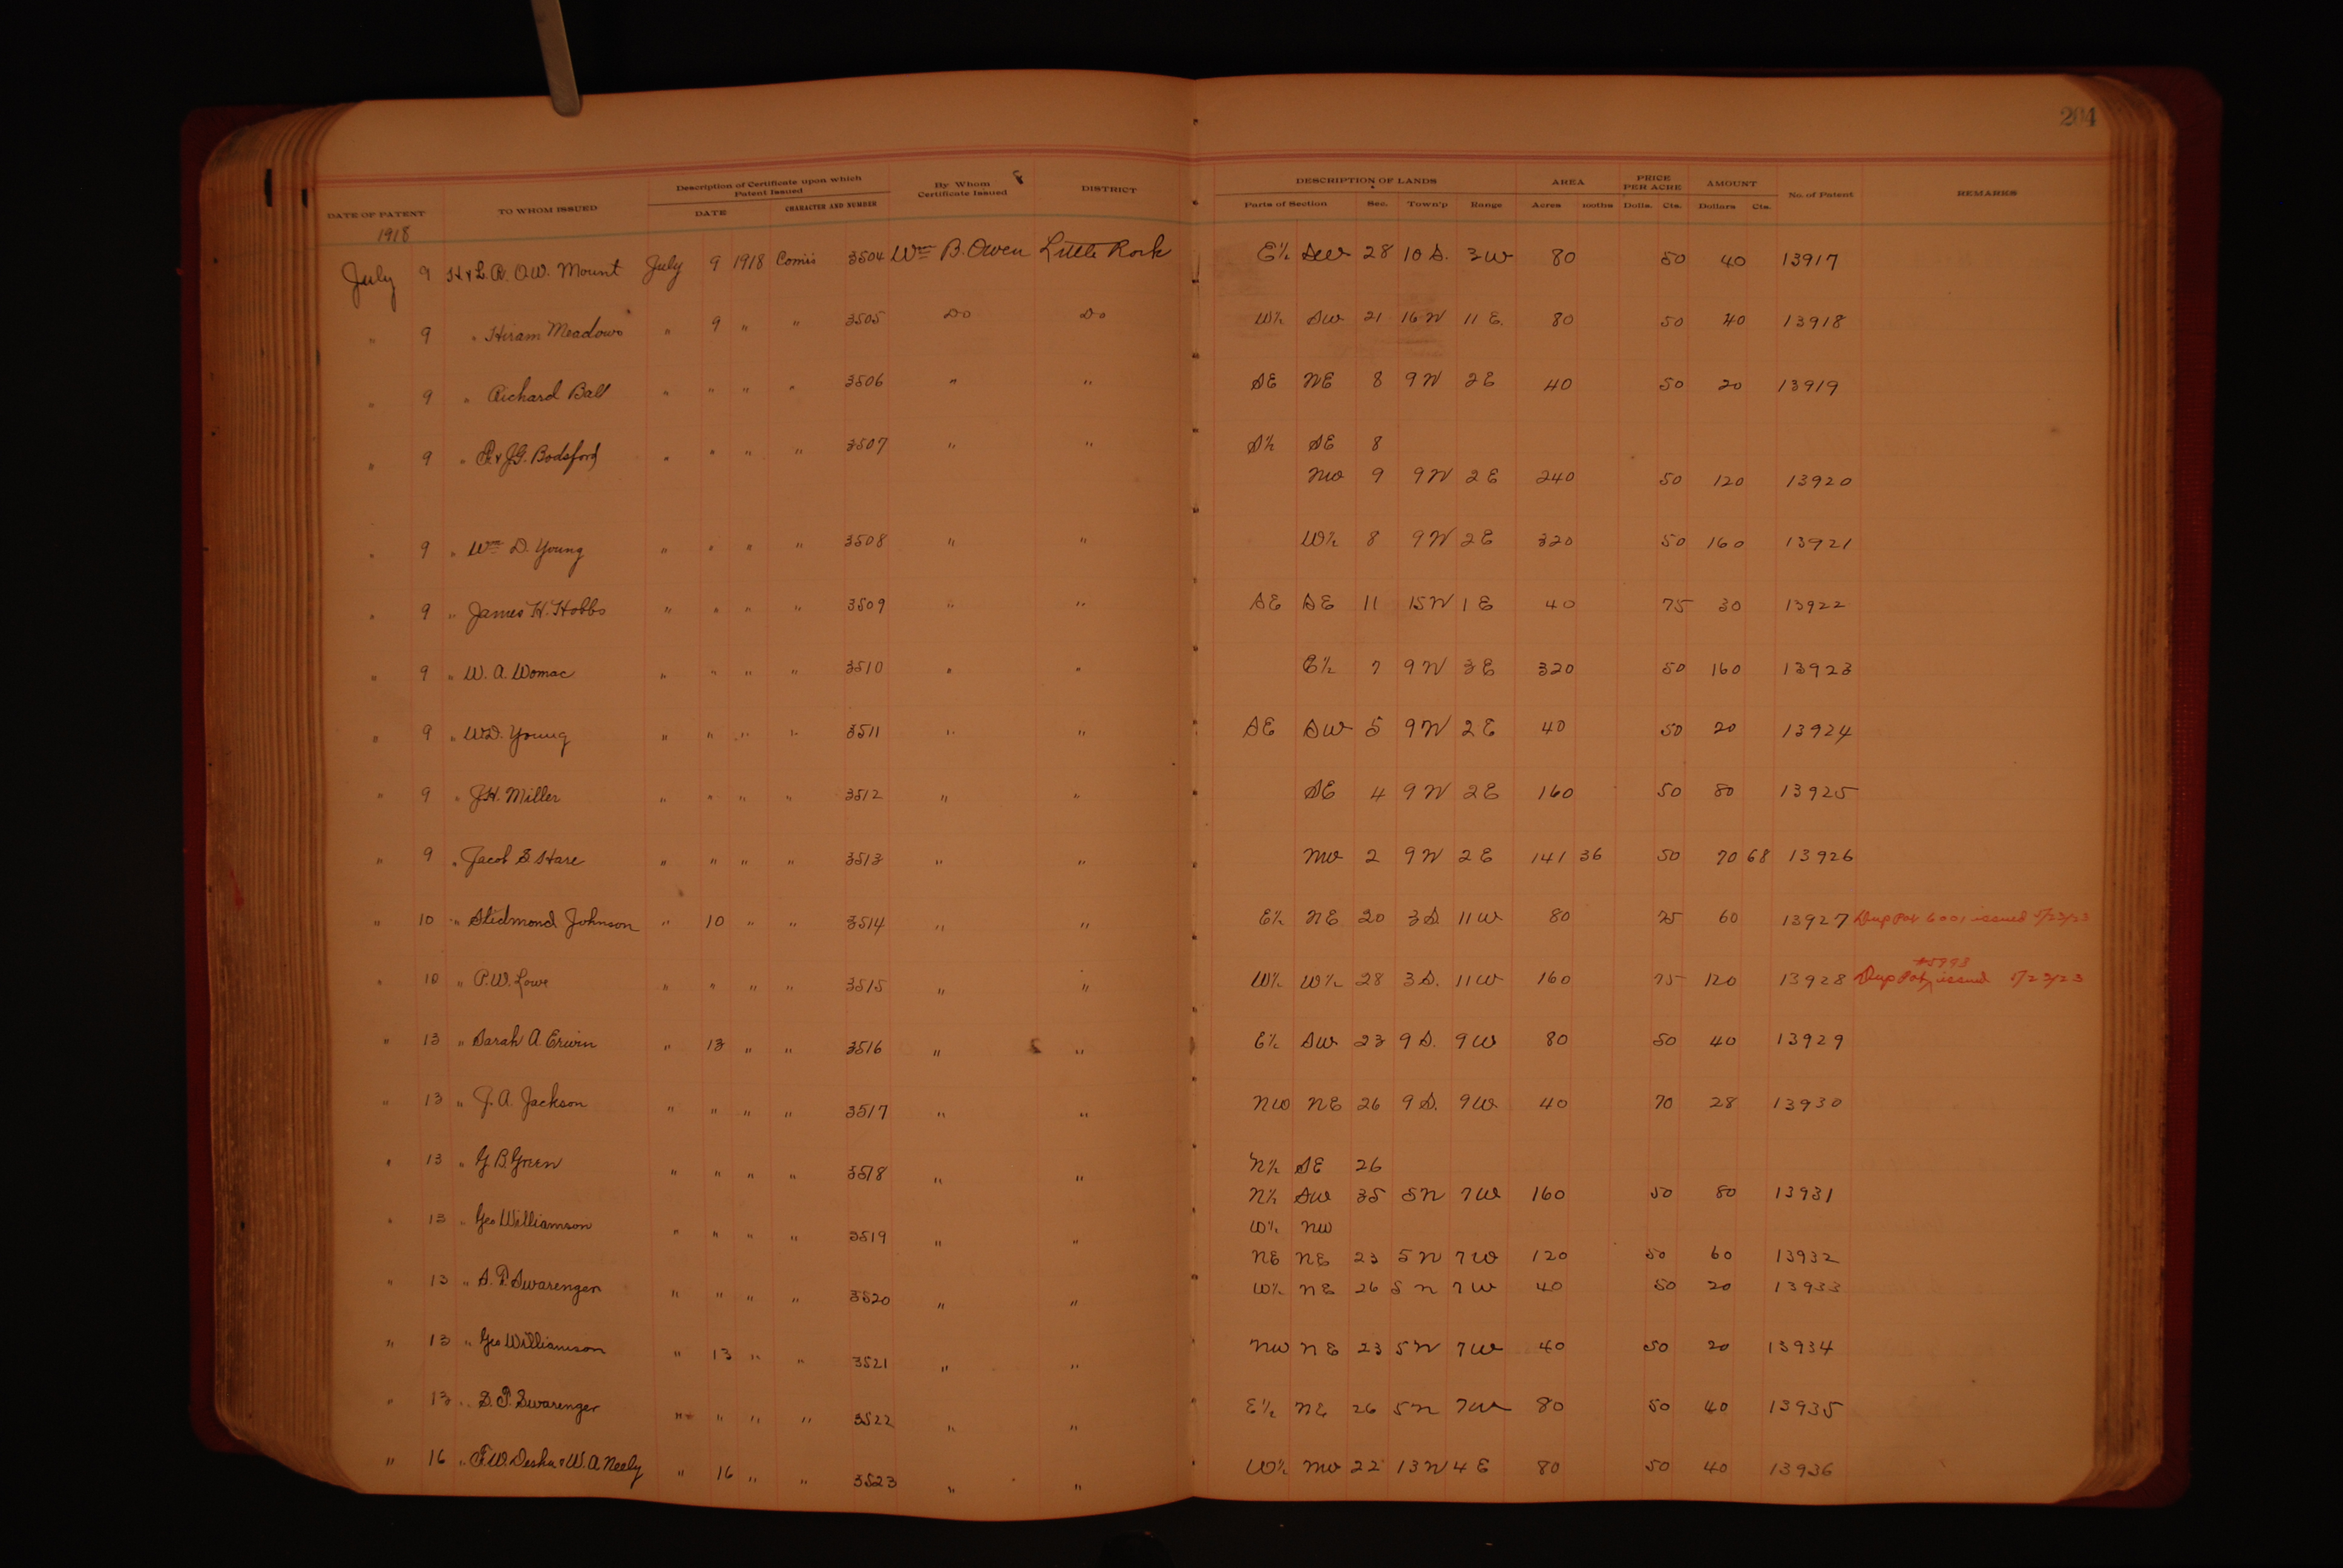 204
DATE OF PATENT TO WHOM ISSUED Description of Certificate upon which Patent Issued By Whom Certificate Issued DISTRICT DESCRIPTION OF LANDS AREA PRICE PER ACRE AMOUNT No. of Patent REMARKS
DATE CHARACTER AND NUMBER Parts of Section Sec. Town'p Range Acres 100ths Dolls. Cts. Dollars Cts.
1918
July 9 H & L. R. O.W. Mount July 9 1918 Comis 3504 Wm B. Owen Little Rock E½ SW 28 10 S. 3W 80 50 40 13917
" 9 " Hiram Meadows " 9 " " 3505 Do Do W½ SW 21 16 N 11 E. 80 50 40 13918
" 9 " Richard Ball " " " " 3506 " " SE NE 8 9 N 2E 40 50 20 13919
" 9 " & J.G. Bodsford " " " " 3507 " " S½ SE 8
NW 9 9N 2E 240 50 120 13920
" 9 " Wm D. Young " " " " 3508 " " W½ 8 9N 2E 320 50 160 13921
" 9 " James H. Hobbs " " " " 3509 " " SE SE 11 15N 1E 40 75 30 13922
" 9 " W. A. Womac " " " " 3510 " " E½ 7 9N 3E 320 50 160 13923
" 9 " W.D. Young " " " " 3511 " " SE SW 5 9N 2E 40 50 20 13924
" 9 " J.H. Miller " " " " 3512 " " SE 4 9N 2E 160 50 80 13925
" 9 " Jacob S. Hare " " " " 3513 " " NW 2 9N 2E 141 36 50 70 68 13926
" 10 " Stidmond Johnson " 10 " " 3514 " " E½ NE 20 3S. 11W 80 75 60 13927 Dup Pat 6001 issued 5/23/23
" 10 " P.W. Lowe " " " " 3515 " " W½ W½ 28 3S. 11W 160 75 120 13928 Dup Pat #5993 issued 5/23/23
" 13 " Sarah A. Erwin " 13 " " 3516 " " E½ SW 23 9S. 9W 80 50 40 13929
" 13 " J. A. Jackson " " " " 3517 " " NW NE 26 9S. 9W 40 70 28 13930
" 13 " G. B. Green " " " " 3518 " " N½ SE 26
N½ SW 35 5N 7W 160 50 80 13931
" 13 " Geo Williamson " " " " 3519 " " W½ NW
NE NE 23 5N 7W 120 50 60 13932
" 13 " S. P. Swarengen " " " " 3520 " " W½ NE 26 5N 7W 40 50 20 13933
" 13 " Geo Williamson " 13 " " 3521 " " NW NE 23 5N 7W 40 50 20 13934
" 13 " S. P. Swarenger " " " " 3522 " " E½ NE 26 5N 7W 80 50 40 13935
" 16 " F.W. Desha & W. A. Neely " 16 " " 3523 " " W½ NW 22 13N 4E 80 50 40 13936